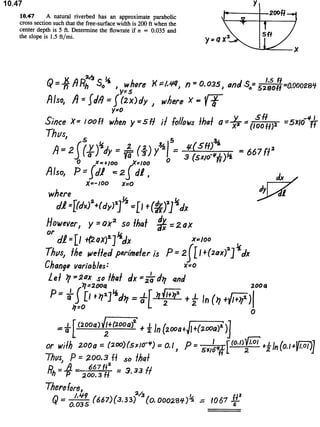 10.47
10.47 A natural riverbed has an approximate parabolic
cross section such that the free-surface width is 200 ft when the
center depth is 5 ft. Determine the flowrate if n = 0.035 and
the slope is 1.5 ft/mi.
y
200 ft
5 ft
y = a x²
x
Q = K/n A R_h^(2/3) S_o^(1/2), where K = 1.49, n = 0.035, and S_o = 1.5 ft/5280 ft = 0.000284
Also, A = ∫dA = ∫_{y=0}^{y=5} (2x) dy, where x = √(y/a)
Since x = 100 ft when y = 5 ft it follows that a = y/x² = 5 ft/(100 ft)² = 5×10⁻⁴ 1/ft
Thus,
A = 2 ∫_0^5 (y/a)^(1/2) dy = 2/√a (2/3) y^(3/2) |_0^5 = 4(5 ft)^(3/2) / 3(5×10⁻⁴/ft)^(1/2) = 667 ft²
Also, P = ∫_{x=-100}^{x=+100} dl = 2 ∫_{x=0}^{x=100} dl,
where
dl = [(dx)² + (dy)²]^(1/2) = [1 + (dy/dx)²]^(1/2) dx
dx
dy
dl
However, y = ax² so that dy/dx = 2ax
or
dl = [1 + (2ax)²]^(1/2) dx
Thus, the wetted perimeter is P = 2 ∫_{x=0}^{x=100} [1 + (2ax)²]^(1/2) dx
Change variables:
Let η = 2ax so that dx = 1/2a dη and
P = 1/a ∫_{η=0}^{η=200a} [1 + η²]^(1/2) dη = 1/a [η√(1+η²)/2 + 1/2 ln(η + √(1+η²))]_0^{200a}
= 1/a [(200a)√(1+(200a)²)/2 + 1/2 ln(200a + √(1+(200a)²))]
or with 200a = (200)(5×10⁻⁴) = 0.1, P = 1/(5×10⁻⁴ 1/ft) [(0.1)√1.01/2 + 1/2 ln(0.1 + √1.01)]
Thus, P = 200.3 ft so that
R_h = A/P = 667 ft²/200.3 ft = 3.33 ft
Therefore,
Q = 1.49/0.035 (667)(3.33)^(2/3) (0.000284)^(1/2) = 1067 ft³/s